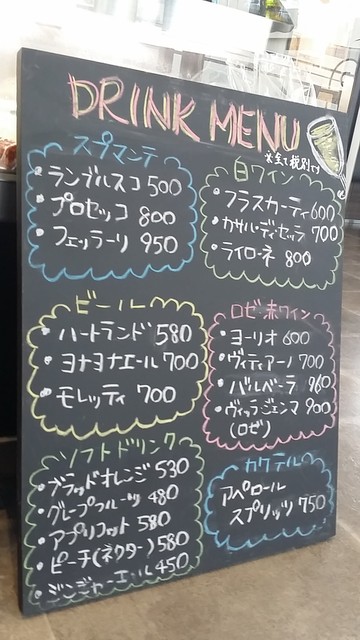 DRINK MENU
※全て税別です
スプマンテ
・ランブルスコ 500
・プロセッコ 800
・フェッラーリ 950
白ワイン
・フラスカーティ 600
・カサルディセッラ 700
・ライローネ 800
ビール
・ハートランド 580
・ヨナヨナエール 700
・モレッティ 700
ロゼ・赤ワイン
・ヨーリオ 600
・ヴィティアーノ 700
・バルベーラ 960
・ヴィッラジェンマ 900
(ロゼ)
ソフトドリンク
・ブラッドオレンジ 530
・グレープフルーツ 480
・アプリコット 580
・ピーチ(ネクター) 580
・ジンジャーエール 450
カクテル
アペロール
スプリッツ 750